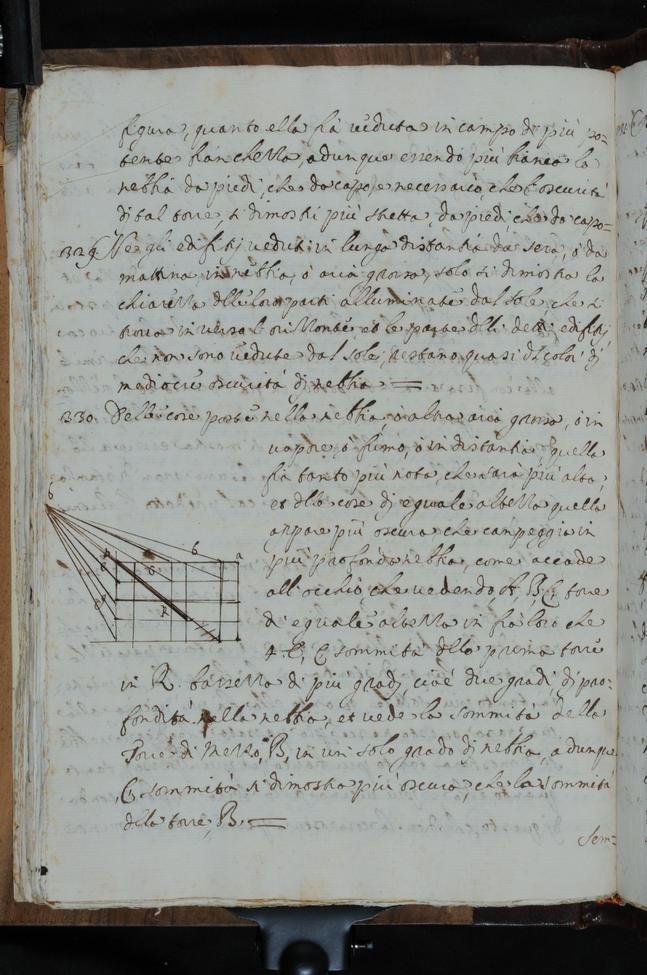 figura, quanto ella fia veduta in campo di più po=
tente bianchezza, adunque essendo più bianca la
nebbia da piedi, che da capo, e necessario, che l'oscurità
di tal torre, si dimostri più stretta, da piedi, che da capo=
329 Ne gli edifitij veduti in lunga distantia da sera, ò da
mattina in nebbia, ò aria grossa, solo si dimostra la
chiarezza delle loro parti alluminate dal sole, che si
trova inverso l'orizzonte, et le parte delli detti edifitij
che non sono vedute dal sole, restano quasi del color di
mediocre oscurità di nebbia =
330 Delle cose poste nella nebbia, ò altra aria grossa, ò in
vapore, ò fumo, ò in distantia quella
fia tanto più nota, che sarà più alta,
et delle cose di eguale altezza quella
appare più oscura che campeggia in
più profonda nebbia, come accade
all'occhio, che vedendo A, B, C, torre
di eguale altezza in fra loro che
C, sommità della prima torre
in R. bassezza di più gradi, cioè due gradi, di pro=
fondità nella nebbia, et vede la sommità della
Torre di mezzo, B, in un solo grado di nebbia, adunque
C, sommità si dimostra più oscura, che la sommità
della torre, B. =
Sem=
b
b
a